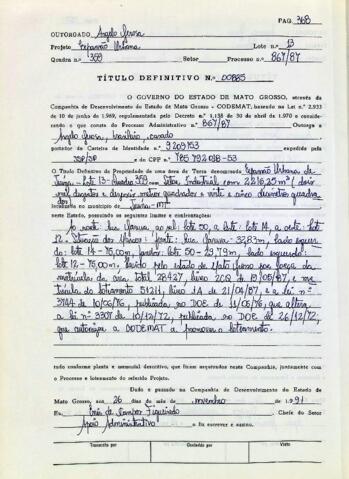 PAG. 368
OUTORGADO: Angelo
Projeto Expansão Urbana Lote n.º 13
Quadra n.º 359 Setor Processo n.º 867/87
TÍTULO DEFINITIVO N.º 00885
O GOVERNO DO ESTADO DE MATO GROSSO, através da
Companhia de Desenvolvimento do Estado de Mato Grosso - CODEMAT, baseado na Lei n.º 2.933
de 10 de junho de 1969, regulamentada pelo Decreto n.º 1.138 de 30 de abril de 1970 e considerando
o que consta do Processo Administrativo n.º 867/87 Outorga a
Angelo brasileiro, casado
portador da Carteira de Identidade n.º expedida pela
SSP/SP e do CPF n.º
O Título Definitivo de Propriedade de uma área de Terra denominada Expansão Urbana de
Juína - Lote 13 - Quadra 359 Setor Industrial com 2.216,25 m² (dois
mil duzentos e dezesseis metros quadrados e vinte e cinco decímetros quadra
dos)
localizada no município de Juína-MT
neste Estado, possuindo os seguintes limites e confrontações:
Ao norte: Rua ao sul: lote 50, a leste: lote 14, a oeste: lote
12. Frente: Rua lado esquer
do: lote 14 - 75,00m, fundos: lote 50 - 29,79m, lado esquerdo:
lote 12 - 75,00m. pelo estado de Mato Grosso por força da
matrícula da área total 28427, livro de 19/08/87, e ma
trícula do loteamento 51211, livro 1A de 21/04/87, e a lei n.º
3744 de 10/06/76, publicada no DOE de 11/06/76, que altera
a lei n.º 3307 de 10/12/72, publicada no DOE de 26/12/72,
que autoriza a CODEMAT a promover o loteamento.
tudo conforme planta e memorial descritivo, que ficam arquivados nesta Companhia, juntamente com
o Processo e loteamento do referido Projeto.
Dado e passado na Companhia de Desenvolvimento do Estado de
Mato Grosso, aos 26 dias do mês de novembro de 1991
Eu, Figueiredo Chefe do Setor
Apoio Administrativo o fiz escrever e assino.
Transcrito por Conferido por Visto